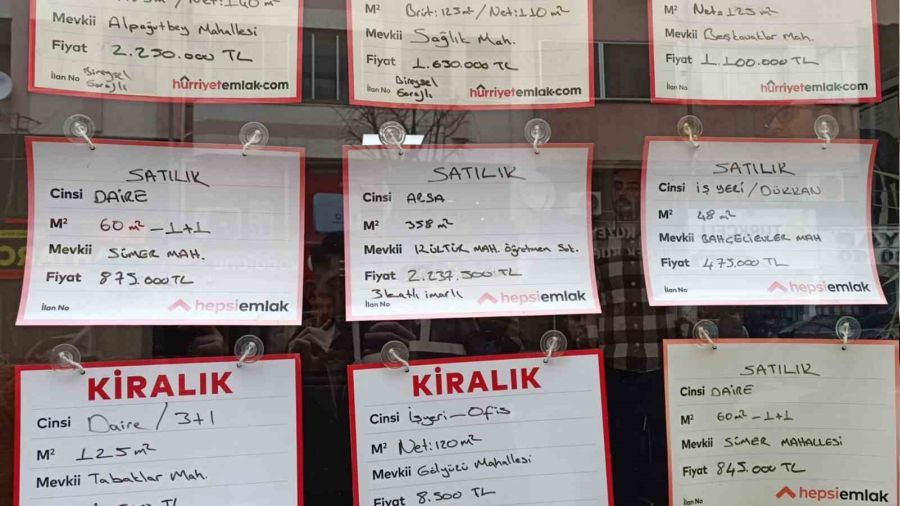 Mevkii Alpagutbey Mahallesi
Fiyat 2.250.000 TL
İlan No Bireysel Garajlı
hürriyetemlak.com
M² Brüt: 125 m² / Net: 110 m²
Mevkii Sağlık Mah.
Fiyat 1.630.000 TL
İlan No Bireysel Garajlı
hürriyetemlak.com
M² Net: 125 m²
Mevkii Beşkavaklar Mah.
Fiyat 1.100.000 TL
İlan No
hürriyetemlak.com
SATILIK
Cinsi DAİRE
M² 60 m² - 1+1
Mevkii SÜMER MAH.
Fiyat 875.000 TL
İlan No
hepsiemlak
SATILIK
Cinsi ARSA
M² 358 m²
Mevkii KÜLTÜR MAH. Öğretmen Sok.
Fiyat 2.237.500 TL
3 katlı imarlı
İlan No
hepsiemlak
SATILIK
Cinsi İŞ YERİ / DÜKKAN
M² 48 m²
Mevkii BAHÇELİEVLER MAH
Fiyat 475.000 TL
İlan No
hepsiemlak
KİRALIK
Cinsi Daire / 3+1
M² 125 m²
Mevkii Tabaklar Mah.
TL
KİRALIK
Cinsi İşyeri - Ofis
M² Net: 120 m²
Mevkii Gölyüzü Mahallesi
Fiyat 8.500 TL
SATILIK
Cinsi DAİRE
M² 60 m² - 1+1
Mevkii SÜMER MAHALLESİ
Fiyat 845.000 TL
İlan No
hepsiemlak